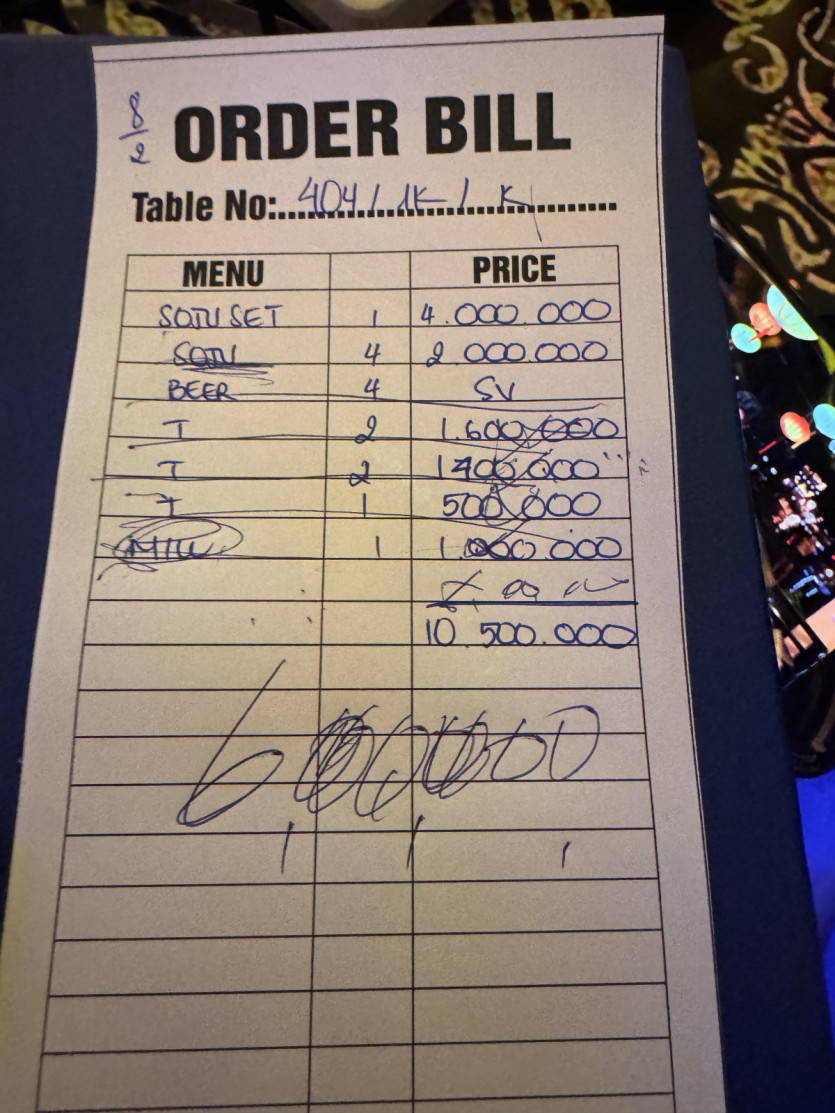 8/2
ORDER BILL
Table No: 404 / 1K / K
MENU PRICE
SOJU SET 1 4.000.000
SOJU 4 2.000.000
BEER 4 SV
T 2 1.600.000
T 2 1400.000
T 1 500.000
1 1.000.000
10.500.000